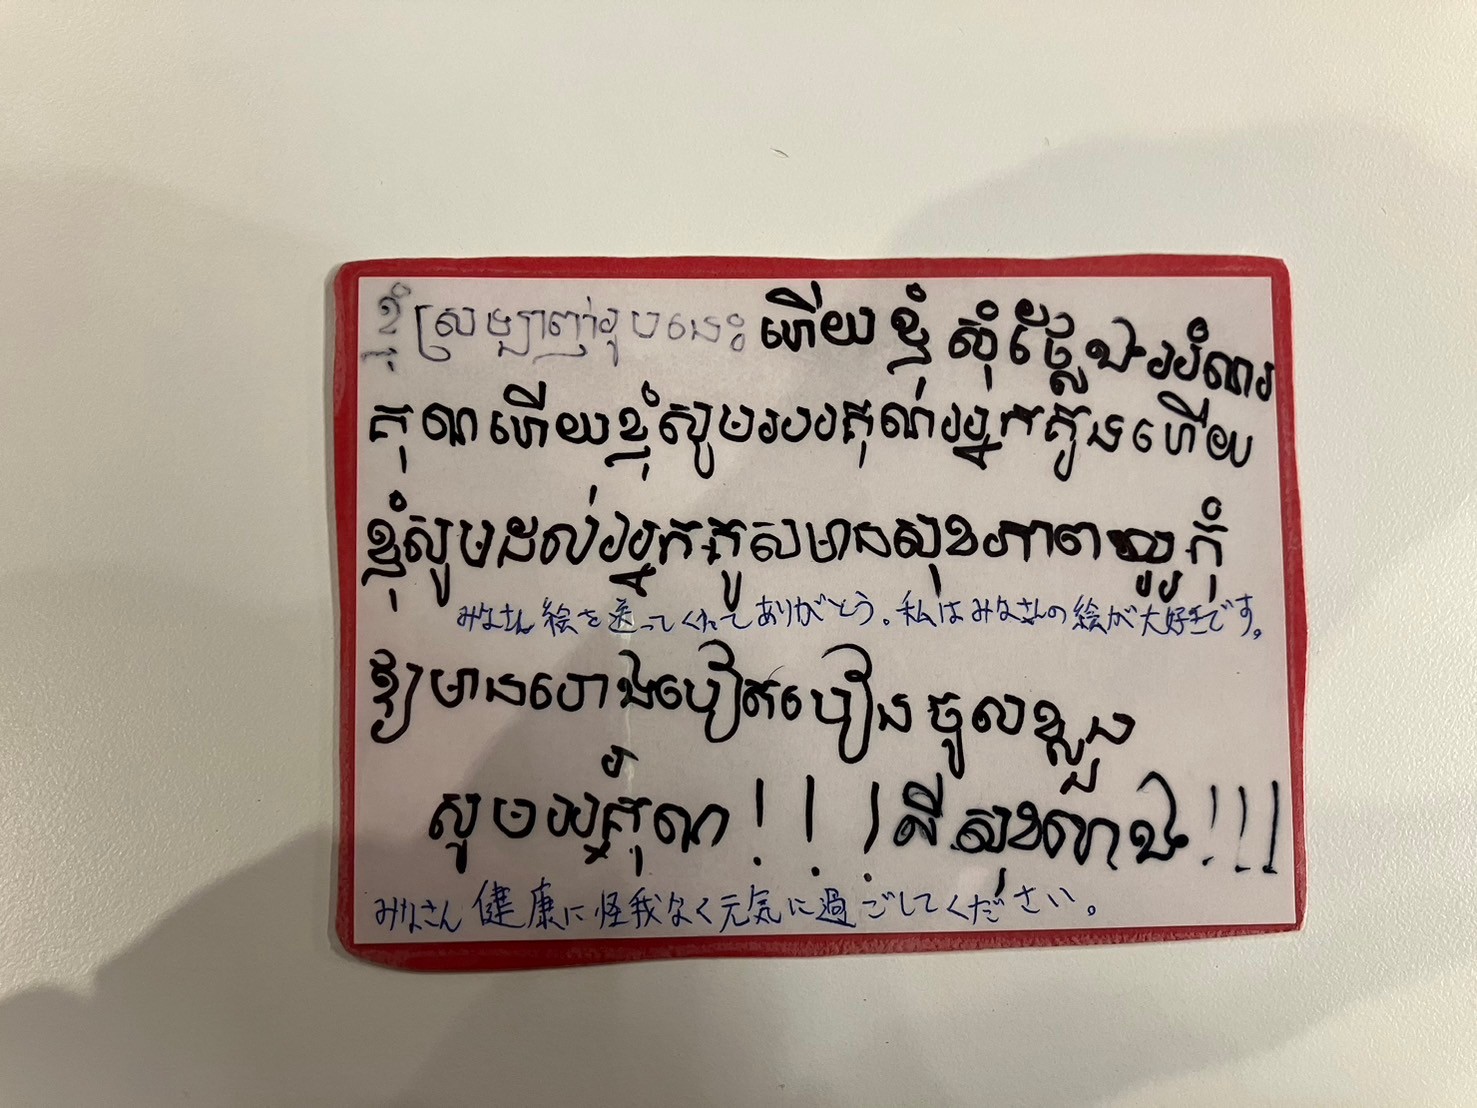 ខ្ញុំស្រឡាញ់រូបនេះហើយខ្ញុំសុំថ្លែងអរំណរ
គុណហើយខ្ញុំសូមអរគុណអ្នកគ្រូងហើយ
ខ្ញុំសូមដល់អ្នកគ្រូសមានសុខភាពល្អកុំ
みなさん絵を送ってくれてありがとう。私はみなさんの絵が大好きです。
ឱ្យមានហោងបៀតបៀនចូលខ្លួន
សូមអរគុណ!!! ពីសុខលាង!!!
みなさん健康に怪我なく元気に過ごしてください。